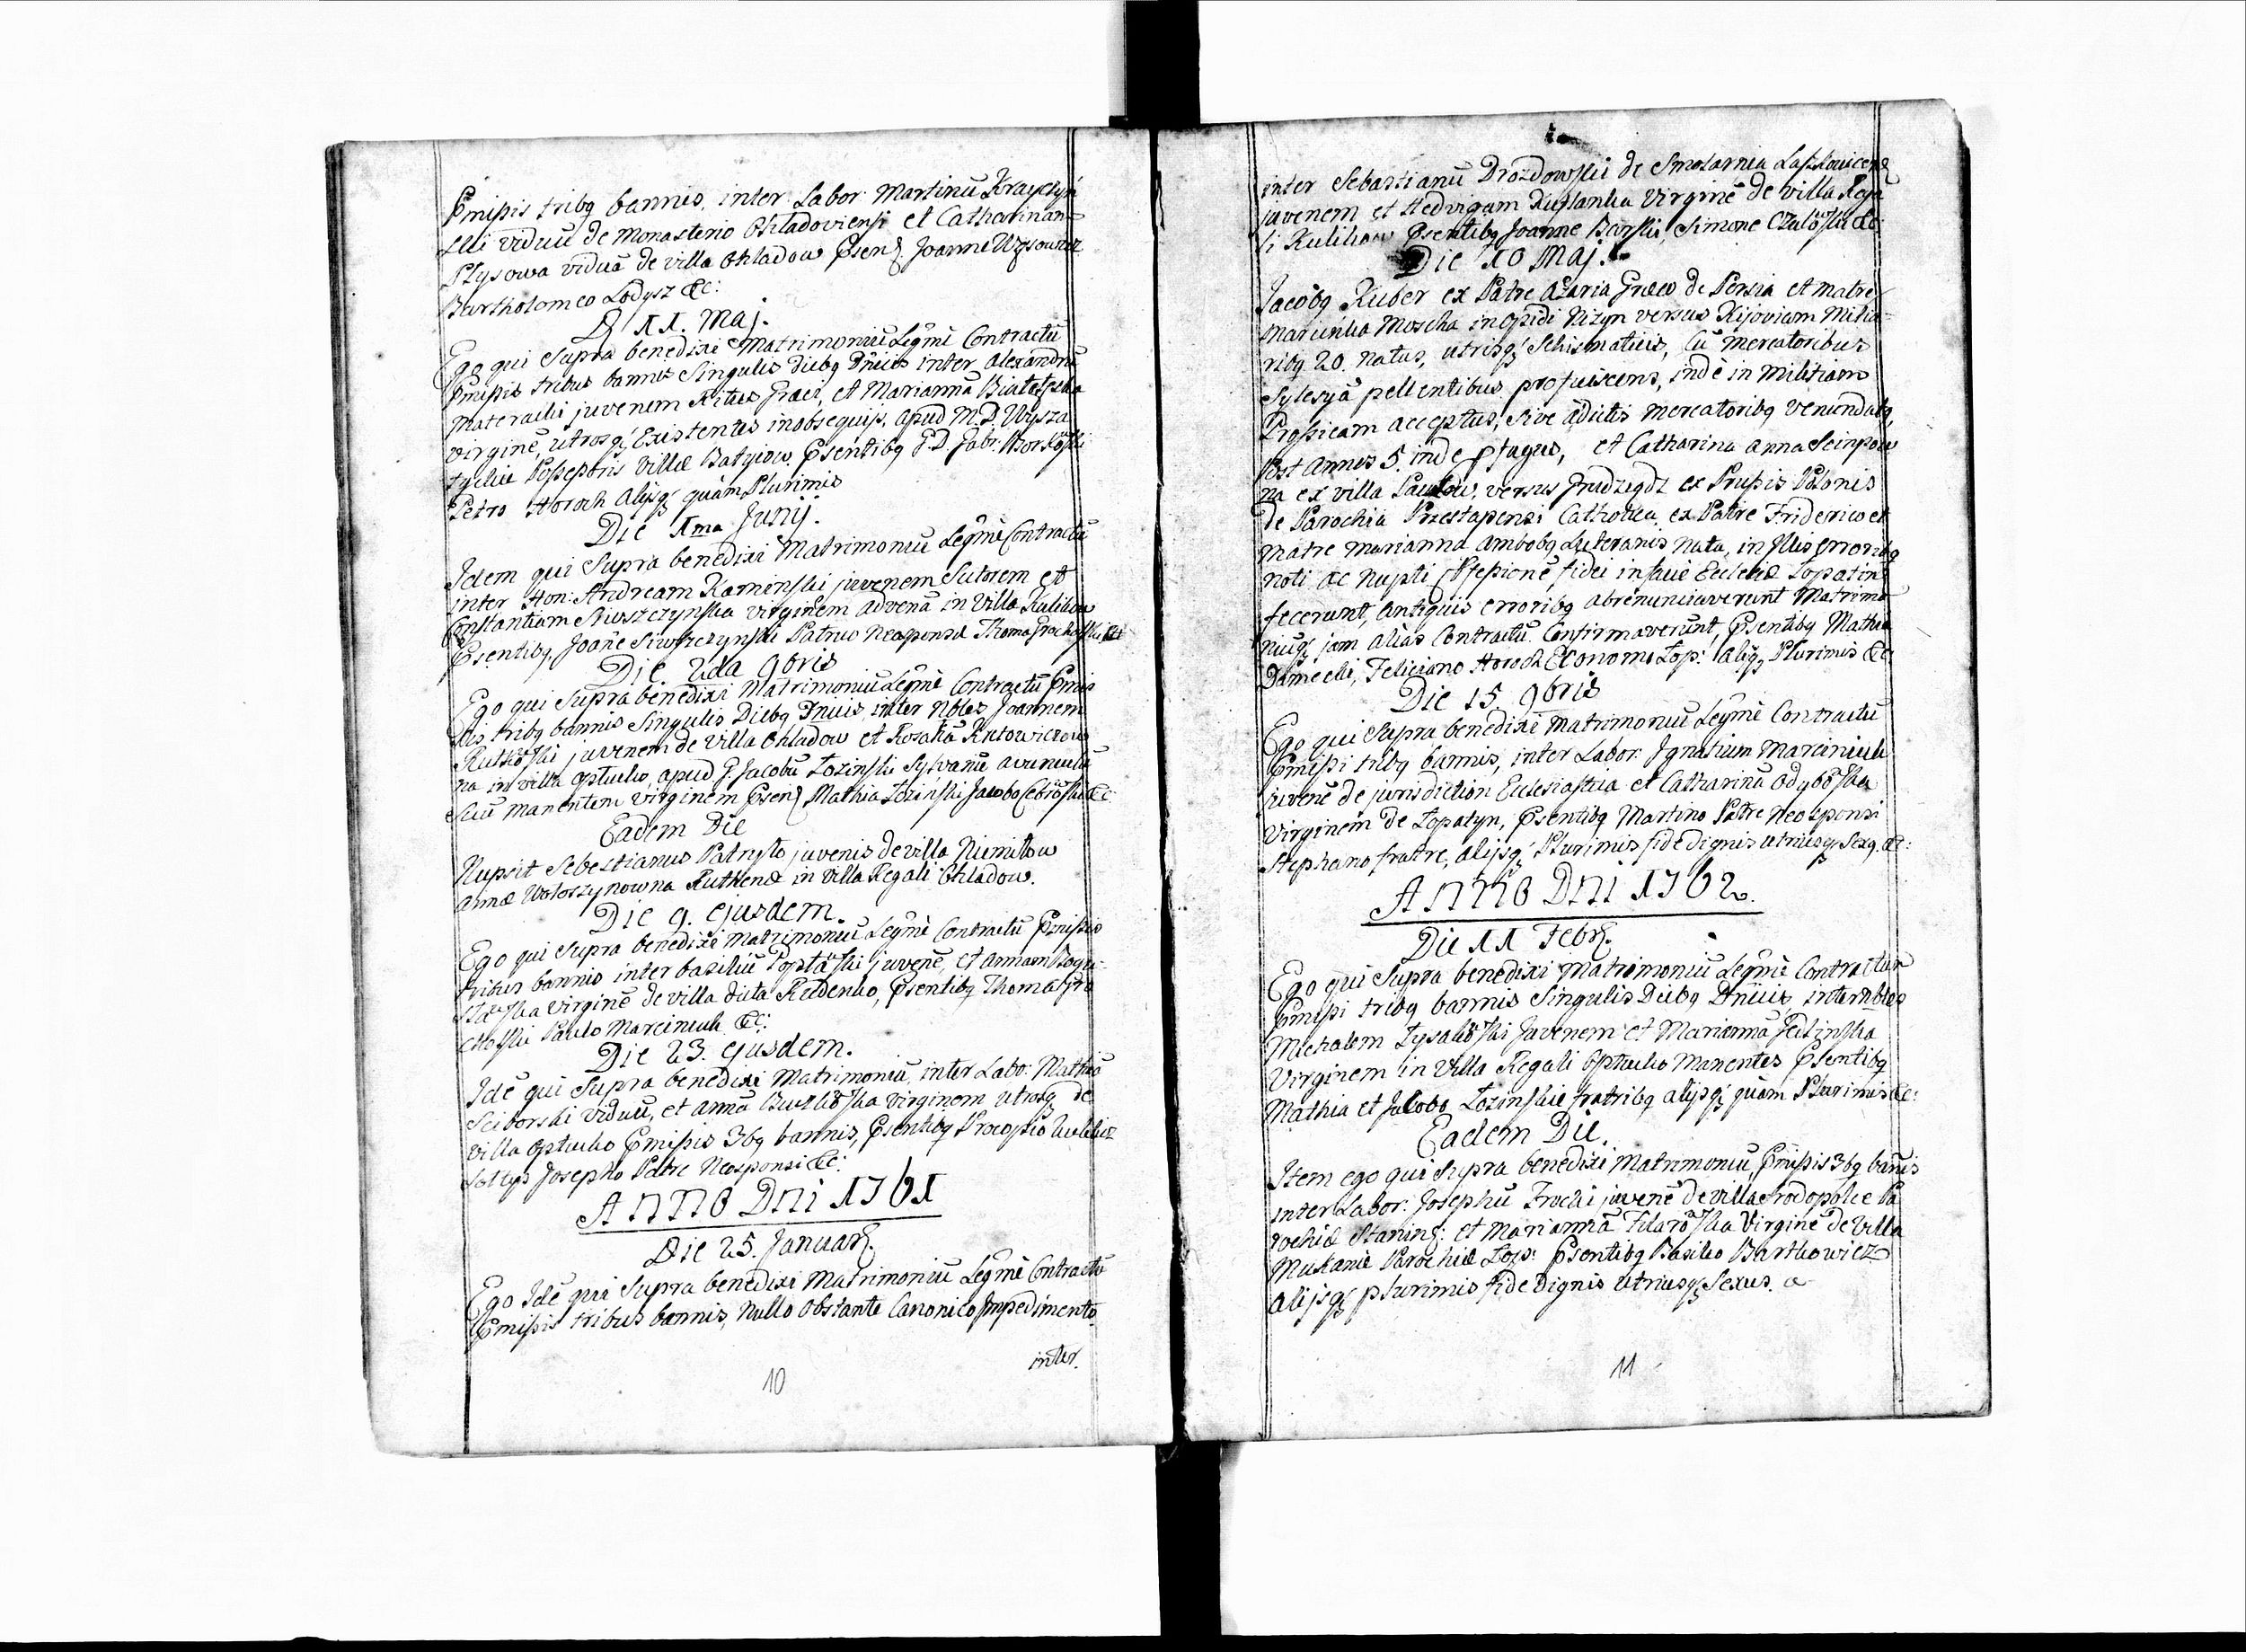 Pmissis tribq bannis, inter Labor: Martinū Krayczyń
Viduū de Monasterio Ohladoviensi et Catharinam
Plysowa viduā de villa Ohladow Psen: Joanne
Bartholomeo Lodysz &c:
D 11. Maj.
Ego qui Supra benedixi Matrimoniū Legmè Contractū
Pmissis tribus bannis Singulis diebq Dnicis inter Alexandrū
juvenem Ritus Graeci, et Mariannā
virginē, utrosq; Existentes in obsequijs, apud M.D. Wysza
Possessoris Villæ Batyiow Psentibq G.D. Gabr:
Petro Horoch alijsq; quàm Plurimis
Die 1ma Junij.
Idem qui Supra benedixi Matrimoniū Legmè Contractū
inter Hon: Andream Kamenski juvenem Sutorem et
Constantiam Siwszczynska virginem advenā in Villa Kulikow
Psentibq, Joañe Siwszczynski Patruo Neosponsæ Thoma
Die 2da 9bris
Ego qui Supra benedixi Matrimoniū Legmè Contractū Pmis
sis tribq bannis Singulis Diebq Dnicis, inter Nbles Joannem
Rutkoski juvenem de Villa Ohladow et Rosaliā Kutowiczow
na in villa Optucko, apud G. Jacobū Lozinski Sylvanū avunculū
Suū manentem virginem Psen: Mathia Lozinski Jacobo &c:
Eadem Die
Nupsit Sebestianus Patryło juvenis de villa Niemiłow
Annæ Wołoszynowna Ruthenæ in Villa Regali Ohladow.
Die 9. ejusdem.
Ego qui Supra benedixi Matrimoniū Legmè Contractū Pmissis
tribus bannis inter basiliū juvenē, et Annam
virginē de villa dicta Rudenko, Psentibq Thoma Gro
choski Paulo Marciniuk &c:
Die 23. ejusdem.
Idē qui Supra benedixi Matrimoniū, inter Labo: Mathiā
Sciborski viduū, et Annā virginem utrosq de
villa Optucko Pmissis 3bq bannis, Psentibq Procopio
Soltys Josepho Patre Neosponsi &c:
Anno Dni 1761
Die 25. Januar:
Ego Idē qui Supra benedixi Matrimoniū Legmè Contractū
Pmissis tribus bannis, Nullo Obstante Canonico Impedimento
inter.
10
inter Sebastianū Drozdowski de Smolarnia
juvenem et Hedvigam Ruslanka Virginē de villa Rega
li Kulikow Psentibq Joanne Barski, Simone &c
Die 10 Maj.
Jacobq Kuber ex Patre Azaria Græco de Persia et matre
Mariunka Moscha in Opidi Nizyn versus Kijoviam Milia
ribq 20. natus, utrisq; Schismaticis, Cū mercatoribus
Sylesyā pellentibus proficiscens, indè in militiam
Prossicam acceptus, sive à dictis mercatoribq venundatq,
Post Annos 5. inde pfugus, et Catharina Anna
na ex villa versus Grudziądz ex Prussis Polonis
de Parochia Catholica, ex Patre Friderico et
Matre Marianna Ambobq Luteranis Nata, in Illis Erroribq
noti ac Nupti Pfessionē fidei in facie Ecclesiæ Lopatin
fecerunt, Antiquis erroribq abrenunciaverunt Matrimo
niuq; jam aliàs Contractū Confirmaverunt, Psentibq Mathia
Feliciano Horoch Economo Lop: alijsq; Plurimis &c
Die 15 9bris
Ego qui Supra benedixi Matrimoniū Legmè Contractū
Pmissi tribq bannis, inter Labor: Ignatium Marciniuk
juvenē de jurisdiction Ecclesiastica et Catharinā
Virginem de Lopatyn, Psentibq Martino Patre Neosponsi
Stephano fratre, alijsq; Plurimis fide Dignis utriusq; Sexq. &c:
Anno Dni 1762.
Die 11 Febr:
Ego qui Supra benedixi Matrimoniū Legmè Contractū
Pmissi tribq bannis Singulis Diebq Dnicis, inter Nbles
Michalem Juvenem et Mariannā Jedlinska
Virginem in Villa Regali Optucko Manentes Psentibq
Mathia et Jacobo Lozinskie fratribq alijsq; quàm Plurimis &c:
Eadem Die.
Item ego qui Supra benedixi Matrimoniū Pmissis 3bq bañis
inter Labor: Josephū juvenē de villa Srodopolce Pa
rochiæ Stanins: et Mariannā Virginē de Villa
Mukanie Parochiæ Lop: Psentibq Basilio Bartkowicz
alijsq; plurimis fide Dignis Utriusq; Sexus.
11